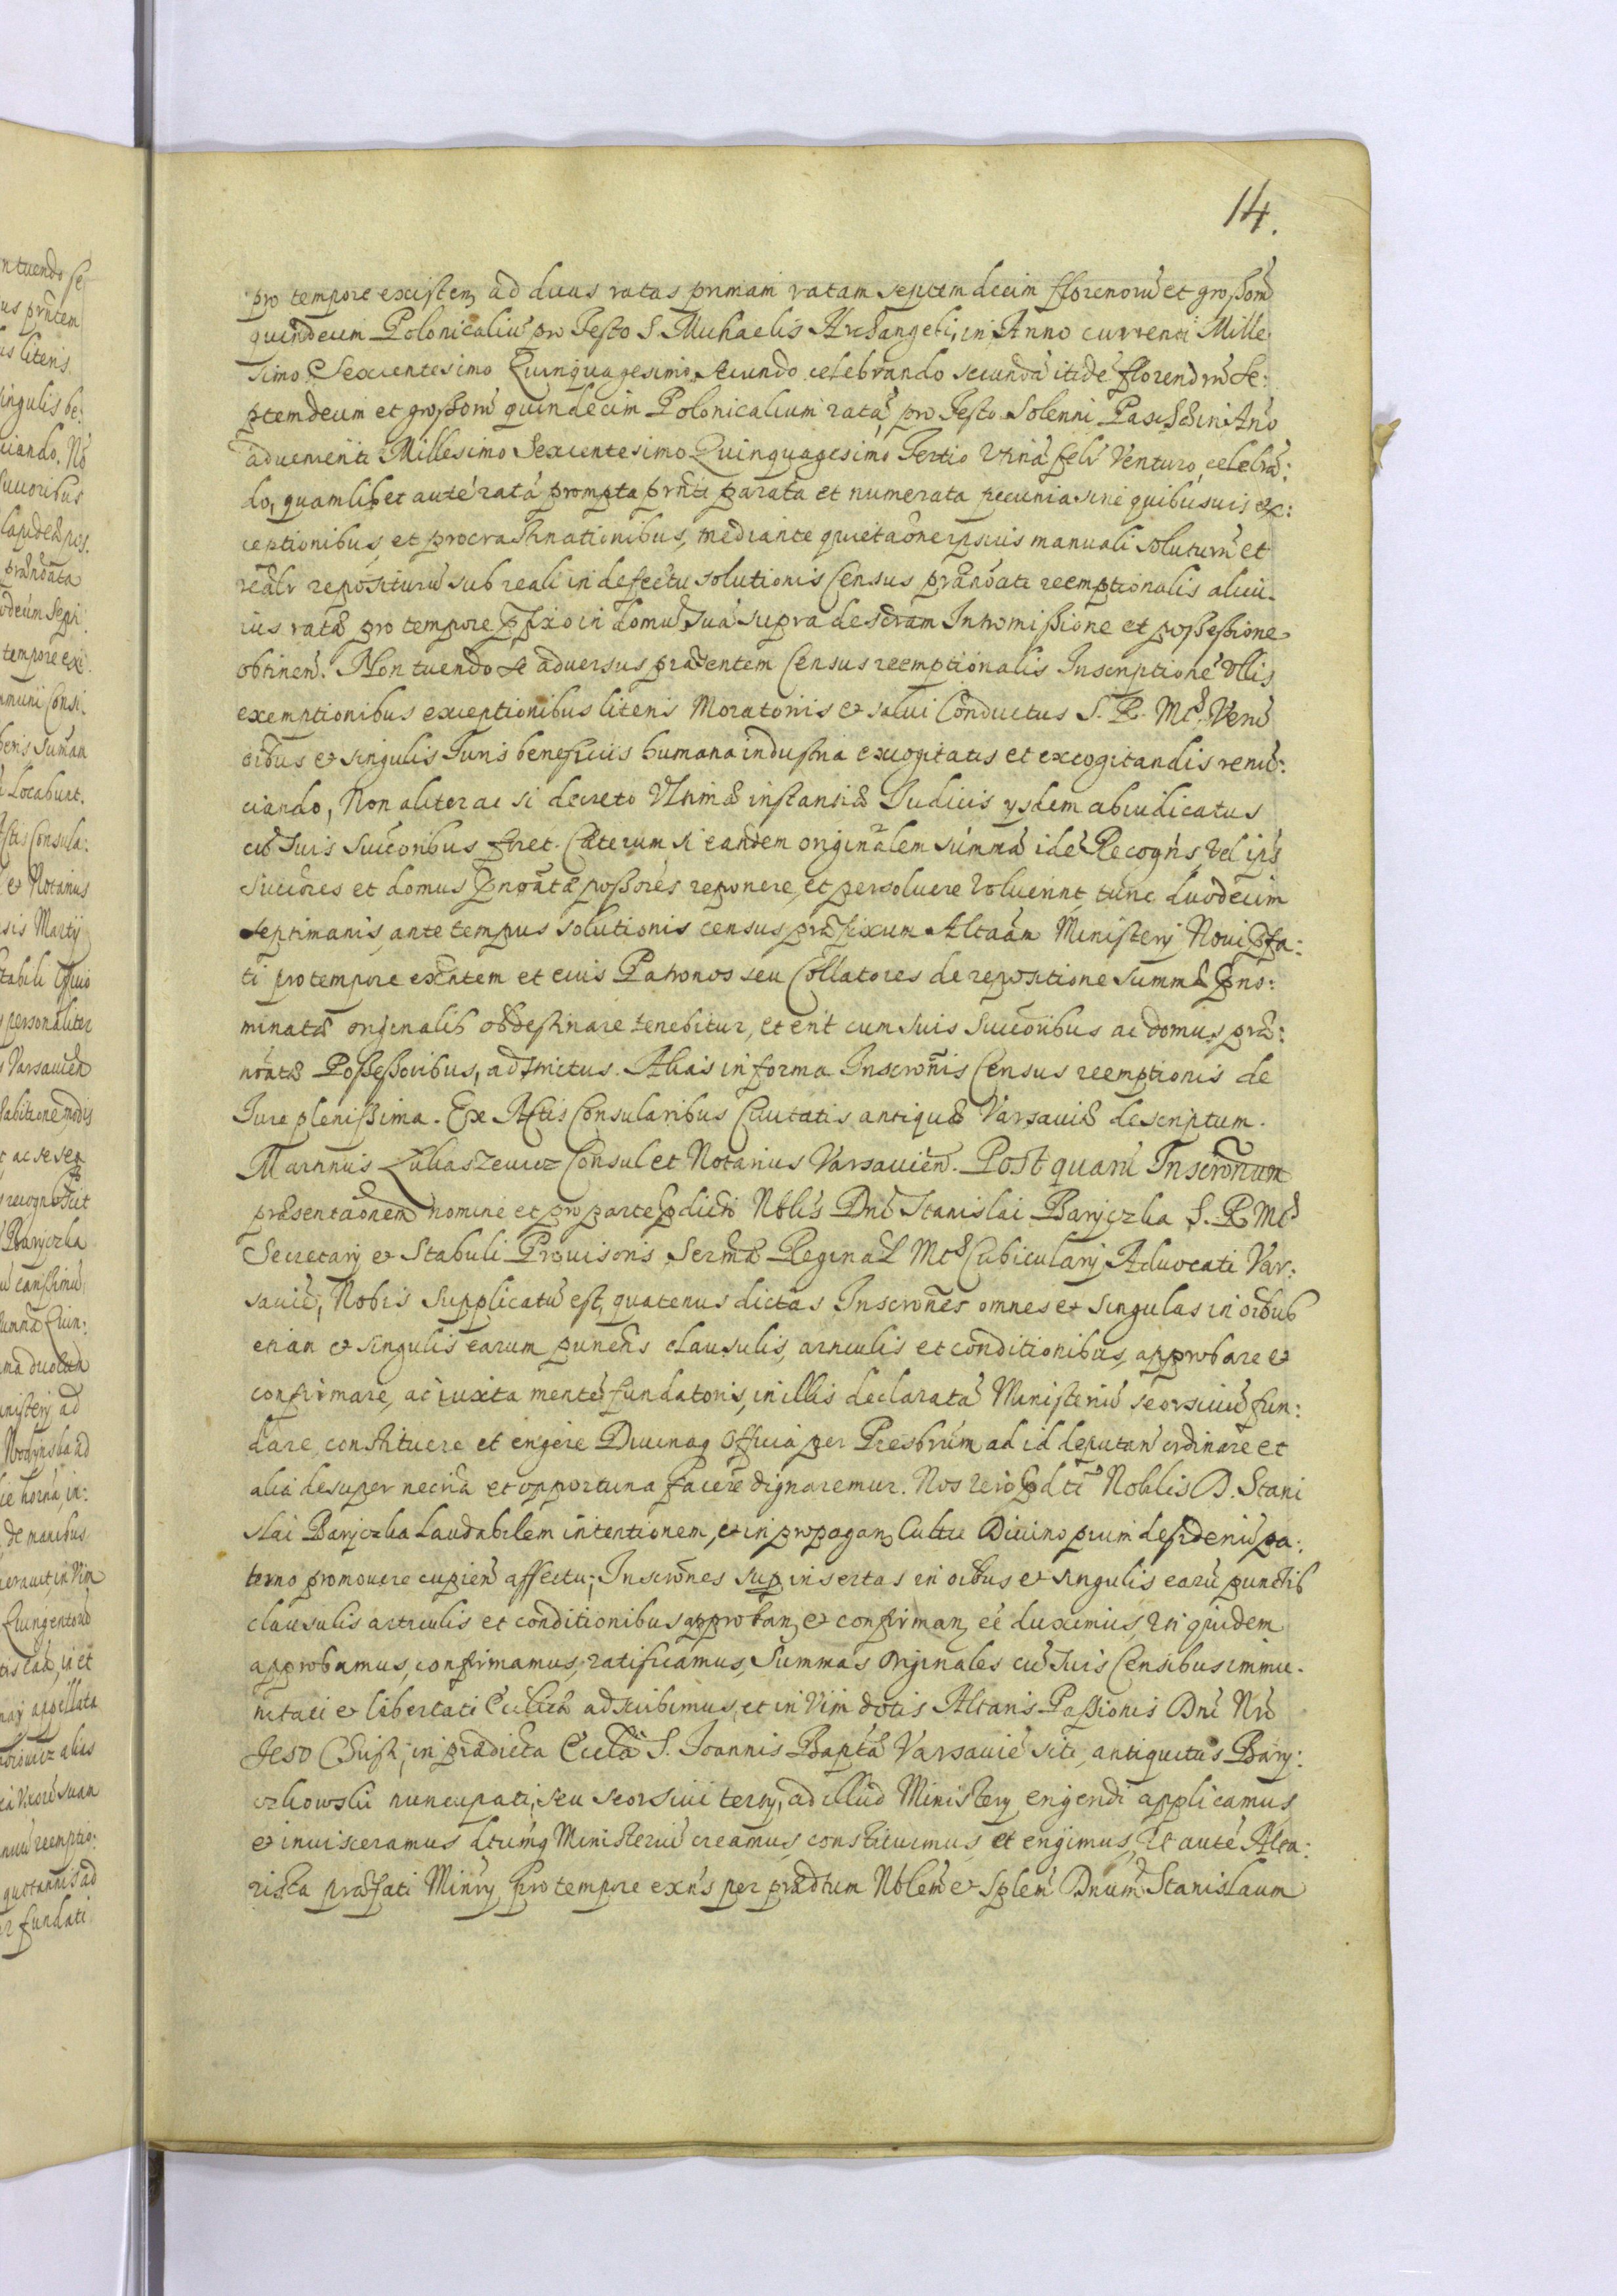 14.
pro tempore existen, ad duas ratas primam ratam septemdecim fflorenorũ et großorũ
quindecim Polonicaliũ pro Festo S. Michaelis Archangeli, in Anno currenti Mille
simo Sexcentesimo Quinquagesimo secundo celebrando secundã itidẽ fflorenorũ Se:
ptemdecim et großorũ quindecim Polonicalium ratã, pro Festo Solenni Paschæ in Año
advenienti Millesimo Sexcentesimo Quinquagesimo Tertio Utinã felr Venturo, celebrã:
do, quamlibet autẽ ratã prompta prñti parata et numerata pecunia sine quibusuis ex:
ceptionibus et procrastinationibus, mediante quietaõne ipsius manuali soluturũ et
realr repositurũ sub reali in defectu solutionis Census prænoãti reemptionalis alicu-
ius ratæ pro tempore pfixo in domũ suã supra descrãm Intromißione et poßeßione
obtineñ. Non tuendo se aduersus præsentem Census reemptionalis Inscriptionẽ Ullis
exemptionibus exceptionibus literis Moratorijs et salui Conductus S. R. Mtis. Verũ
oĩbus et singulis Juris beneficijs humana industria excogitatis et excogitandis renũ:
ciando, Non aliter ac si decreto Ultimæ instansiæ Judicij ijsdem abiudicatus
cũ suis Succoribus foret. Cæterum si eandem originalem summã idẽ Recogñs Vel ipŝ
Succores et domus pnoãtæ poßores reponere, et persoluere Voluerint, tunc duodecim
septimanis, ante tempus solutionis census præfixum Altaãm Ministerij Noui pfa:
ti pro tempore exñtem et eius Patronos seu Collatores de repositione summæ pno:
minatæ originalis obdestinare tenebitur, et erit cum suis Succoribus ac domus præ:
noãtæ Poßeßoribus, adstrictus. Alias in forma Inscroñis Census reemptionis de
Jure plenißima. Ex Actis Consularibus Ciuitatis antiquæ Varsauiæ descriptum.
Martinus Łukaszewicz Consul et Notarius Varsavieñ. Post quarũ Inscroñum
præsentaõnem nomine et pro parte pdicti Nblis Dñi Stanislai Baryczka S. R. Mtis
Secretarij et Stabuli Prouisoris Sermæ Reginalis Mtis Cubicularij Aduocati Var:
sauieñ, Nobis supplicatũ est, quatenus dictas Inscroñes omnes et singulas in oĩbus
etiam et singulis earum punctis clausulis, articulis et conditionibus, approbare et
confirmare, ac iuxta mentẽ fundatoris, in illis declaratã Ministeriũ seorsiuũ fun:
dare, constituere et erigere Diuinaq Officia per Presbrum ad id deputan ordinare et
alia desuper necria et opportuna facere dignaremur. Nos vero pdti Nobilis D. Stani
slai Baryczka Laudabilem intentionem, et in propagan Cultu Diuino pium desideriũ pa:
terno promouere cupien affectu; Inscroñes sup insertas in oĩbus et singulis earũ punctis
clausulis articulis et conditionibus approban, et confirman, eẽ duximus, uti quidem
approbamus, confirmamus, ratificamus, Summas originales cũ suis Censibus immu-
nitati et libertati Ecclicæ adscribimus, et in Vim dotis Altaris Paßionis Dñi Nri
Jesu Christi, in prædicta Eccla S. Joannis Baptæ Varsauiẽ siti, antiquitus Bary:
czkowski nuncupati, seu seorsiui ternj, ad illud Ministerij erigendi applicamus
et inuisceramus dictumq Ministeriũ creamus, constituimus et erigimus, Ut autẽ Alta:
rista præfati Minrij pro tempore exñs per prædtum Nblem et Splem Dnum Stanislaum